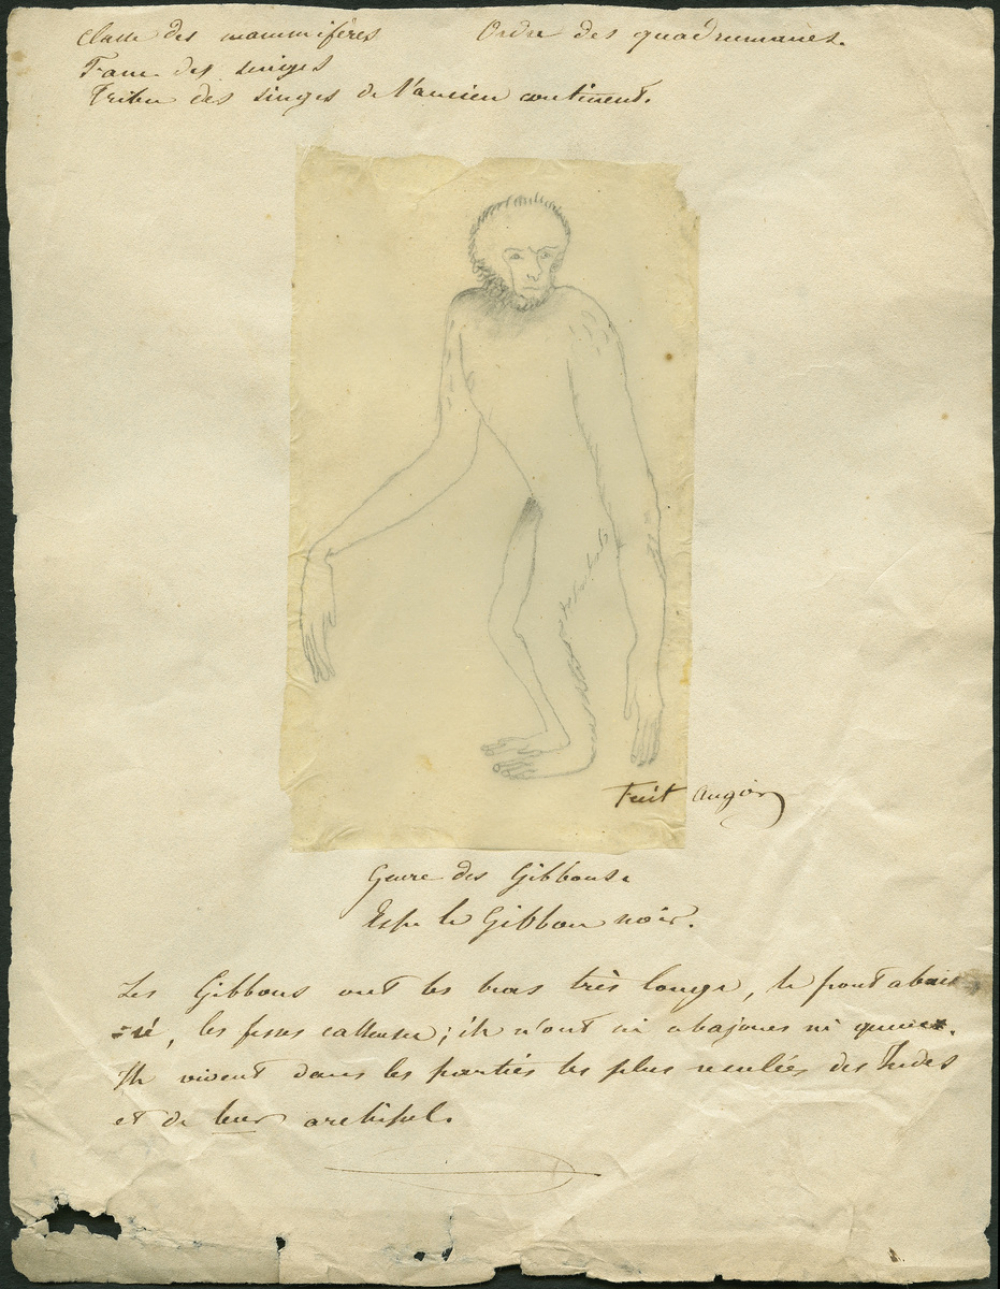 Classe des mammifères Ordre des quadrumanes.
Fam. des singes
Tribu des singes de l'ancien continent.
Fecit Augier
Genre des Gibbons.
Esp. le Gibbon noir.
Les Gibbons ont les bras très longs, le front abais
=sé, les fesses calleuses; ils n'ont ni abajoues ni queue.
Ils vivent dans les parties les plus reculées des Indes
et de leur archipel.